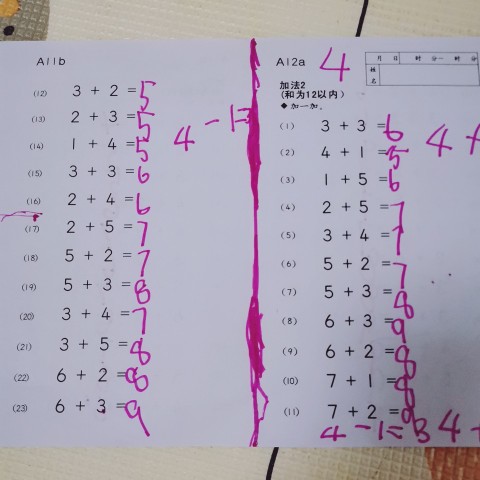 A11b
(12) 3 + 2 = 5
(13) 2 + 3 = 5
(14) 1 + 4 = 5
4 - 1 =
(15) 3 + 3 = 6
(16) 2 + 4 = 6
(17) 2 + 5 = 7
(18) 5 + 2 = 7
(19) 5 + 3 = 8
(20) 3 + 4 = 7
(21) 3 + 5 = 8
(22) 6 + 2 = 8
(23) 6 + 3 = 9
A12a 4
月 日 时 分— 时 分
姓名
加法2
(和为12以内)
◆加一加.
(1) 3 + 3 = 6
4 +
(2) 4 + 1 = 5
(3) 1 + 5 = 6
(4) 2 + 5 = 7
(5) 3 + 4 = 7
(6) 5 + 2 = 7
(7) 5 + 3 = 8
(8) 6 + 3 = 9
(9) 6 + 2 = 8
(10) 7 + 1 = 8
(11) 7 + 2 = 9
4 - 1 = 3 4 +